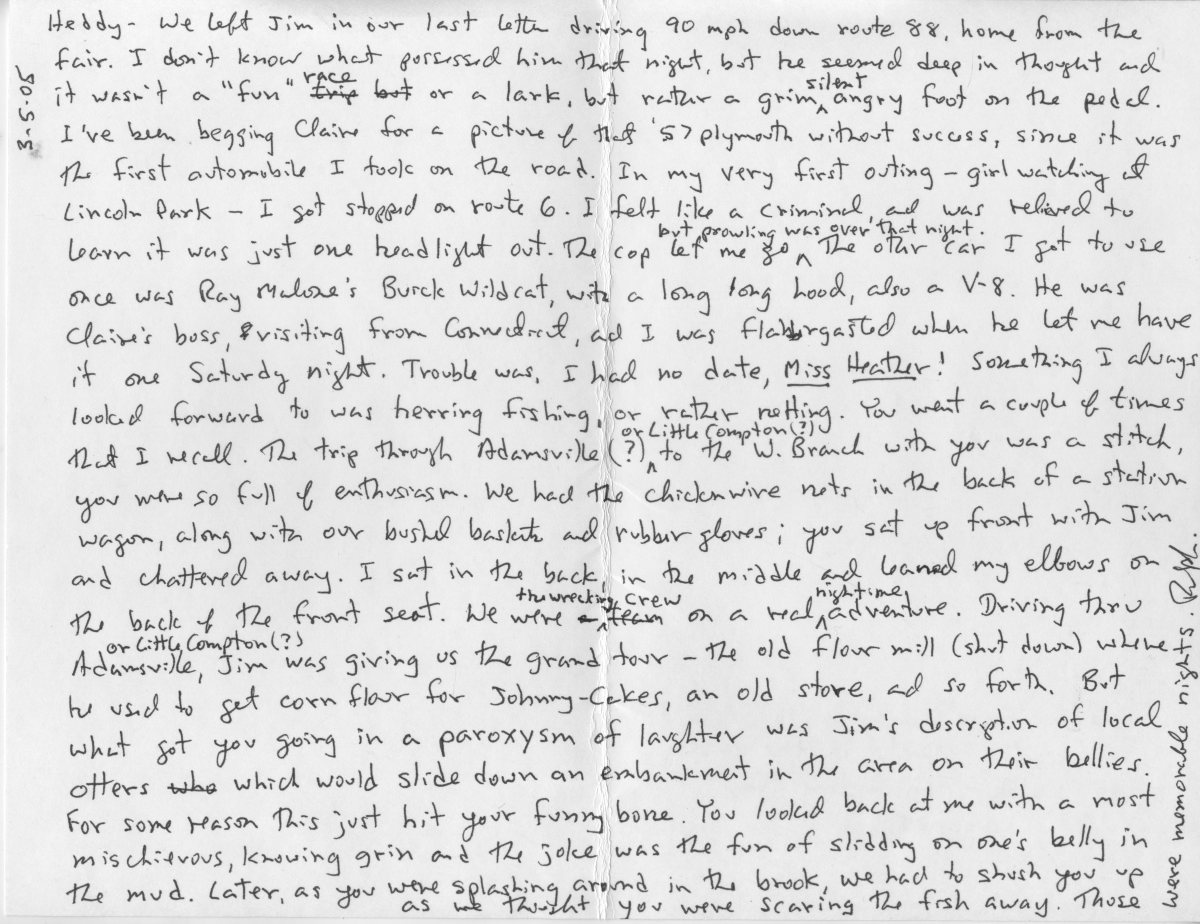 3-5-05
Heddy- We left Jim in our last letter driving 90 mph down route 88, home from the
fair. I don't know what possessed him that night, but he seemed deep in thought and
it wasn't a "fun" trip but race or a lark, but rather a grim, silent angry foot on the pedal.
I've been begging Claire for a picture of that '57 plymouth without success, since it was
the first automobile I took on the road. In my very first outing - girl watching at
Lincoln Park - I got stopped on route 6. I felt like a criminal, and was relieved to
learn it was just one headlight out. The cop let me go but prowling was over that night. The other car I got to use
once was Ray Malone's Buick Wildcat, with a long long hood, also a V-8. He was
Claire's boss, visiting from Connecticut, and I was flabbergasted when he let me have
it one Saturday night. Trouble was, I had no date, Miss Heather! Something I always
looked forward to was herring fishing, or rather netting. You went a couple of times
that I recall. The trip through Adamsville (?) or Little Compton (?) to the W. Branch with you was a stitch,
you were so full of enthusiasm. We had the chickenwire nets in the back of a station
wagon, along with our bushel baskets and rubber gloves; you sat up front with Jim
and chattered away. I sat in the back, in the middle and leaned my elbows on
the back of the front seat. We were a team the wrecking crew on a real nightime adventure. Driving thru
Adamsville, or Little Compton (?) Jim was giving us the grand tour - the old flour mill (shut down) where
he used to get corn flour for Johnny-Cakes, an old store, and so forth. But
what got you going in a paroxysm of laughter was Jim's description of local
otters who which would slide down an embankment in the area on their bellies.
For some reason this just hit your funny bone. You looked back at me with a most
mischievous, knowing grin and the joke was the fun of slidding on one's belly in
the mud. Later, as you were splashing around in the brook, we had to shush you up
as we thought you were scaring the fish away. Those
were memorable nights. Ralph.